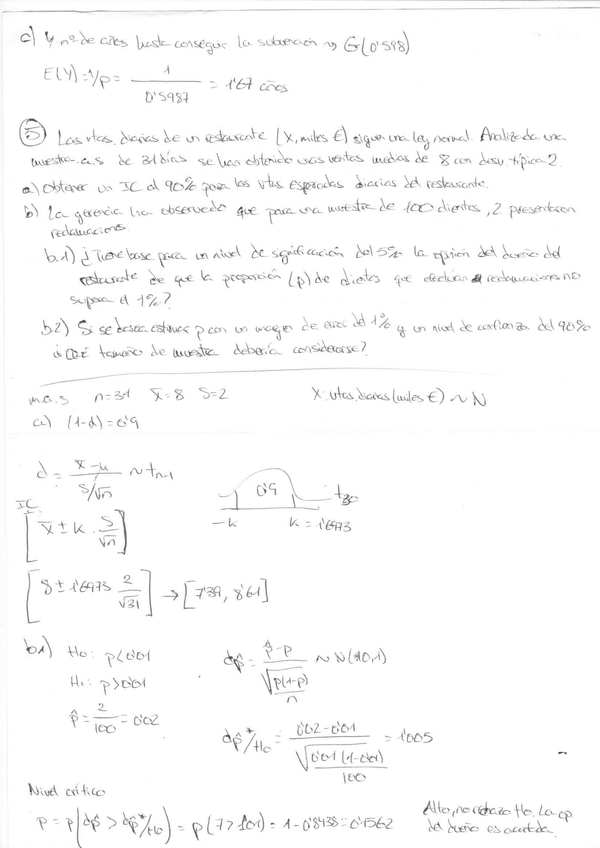 c) Y nº de años hasta conseguir la subvención ~> G(0'598)
E(Y) = 1/p = 1 / 0'5987 = 1'67 años
⑤ Las vtas. diarias de un restaurante (X, miles €) siguen una ley normal. Analizada una
muestra a.s de 31 días se han obtenido unas ventas medias de 8 con desv. típica 2.
a) Obtener un IC al 90% para las vtas esperadas diarias del restaurante.
b) La gerencia ha observado que para una muestra de 100 clientes, 2 presentaron
reclamaciones.
b.1) ¿Tiene base para un nivel de significación del 5% la opinión del dueño del
restaurante de que la proporción (p) de clientes que efectúan reclamaciones no
supera el 1%?
b.2) Si se desea estimar p con un margen de error del 1% y un nivel de confianza del 90%
¿Qué tamaño de muestra debería considerarse?
m.a.s n=31 x̄=8 S=2 X: vtas. diarias (miles €) ~ N
a) (1-α) = 0'9
d = (x̄-u) / (S/√n) ~ t n-1
0'9 t30
-k k = 1'6973
IC
[x̄ ± k · S/√n]
[8 ± 1'6973 2/√31] → [7'39, 8'61]
b1) H0: p<0'01 dp̂ = (p̂-p) / √(p(1-p)/n) ~ N(0,1)
H1: p>0'01
p̂ = 2/100 = 0'02 dp̂*/H0 = (0'02-0'01) / √(0'01(1-0'01)/100) = 1'005
Nivel crítico
p = p(dp̂ > dp̂*/H0) = p(Z > 1'01) = 1-0'8438 = 0'1562 Alto, no rechazo H0. La op
del dueño es acertada.